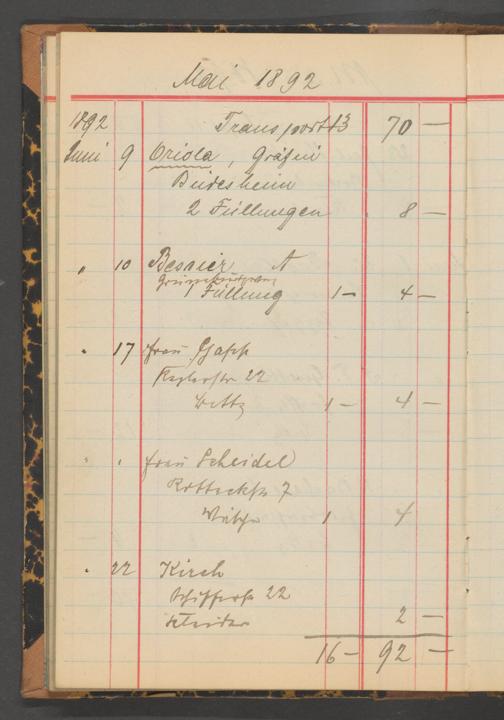 Mai 1892
1892 Transport 13 70 —
Juni 9 Oriola, Gräfin
Büdesheim
2 Füllungen 8 —
" 10 Besnier A
1 Füllung 1 — 4 —
" 17 Frau
22
1 — 4 —
" " Frau Scheidel
Rotteckstr 7
Wäsche 1 4
" 22 Kirch
Schifferstr 22
Kleider 2 —
16 — 92 —